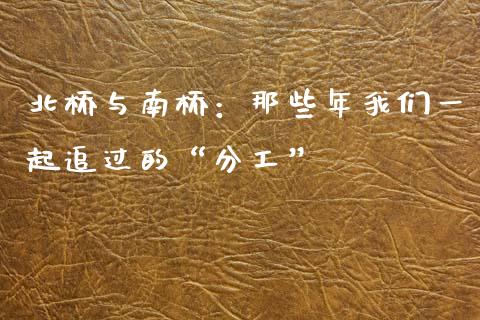 北桥与南桥：那些年我们一
起追过的“分工”